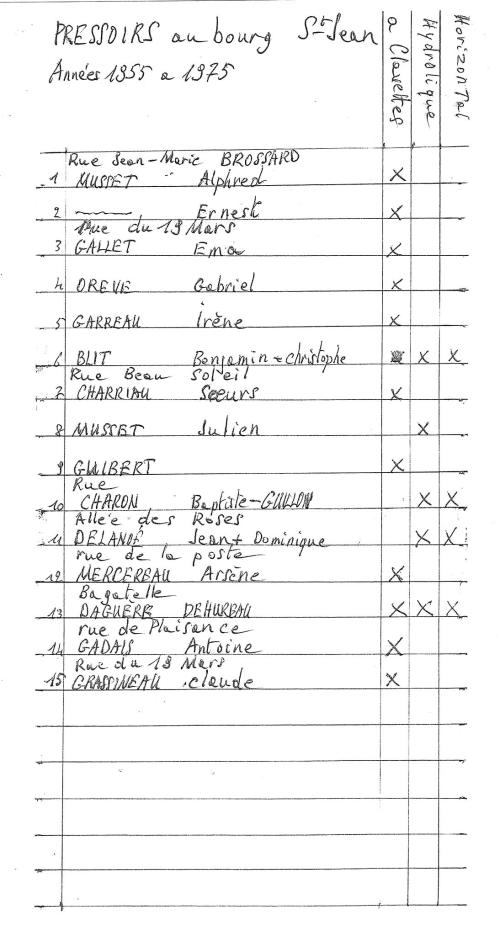 PRESSOIRS au bourg St-Jean
Années 1955 a 1975
a Clavettes
Hydrolique
Horizontal
Rue Jean-Marie BROSSARD
1 MUSSET " Alphred X
2 —— Ernest X
Rue du 19 Mars
3 GALLET Ema X
4 OREVE Gabriel X
5 GARREAU Irène X
6 BLIT Benjamin + christophe X X
Rue Beau Soleil
7 CHARRIAU Soeurs X
8 MUSSET Julien X
9 GUIBERT X
Rue
10 CHARON Baptiste-GUILLON X X
Allée des Roses
11 DELANOË Jean + Dominique X X
rue de la poste
12 MERCEREAU Arsène X
Bagatelle
13 DAGUÈRE DEHUREAU X X X
rue de Plaisance
14 GADAIS Antoine X
Rue du 19 Mars
15 GRASSINEAU claude X